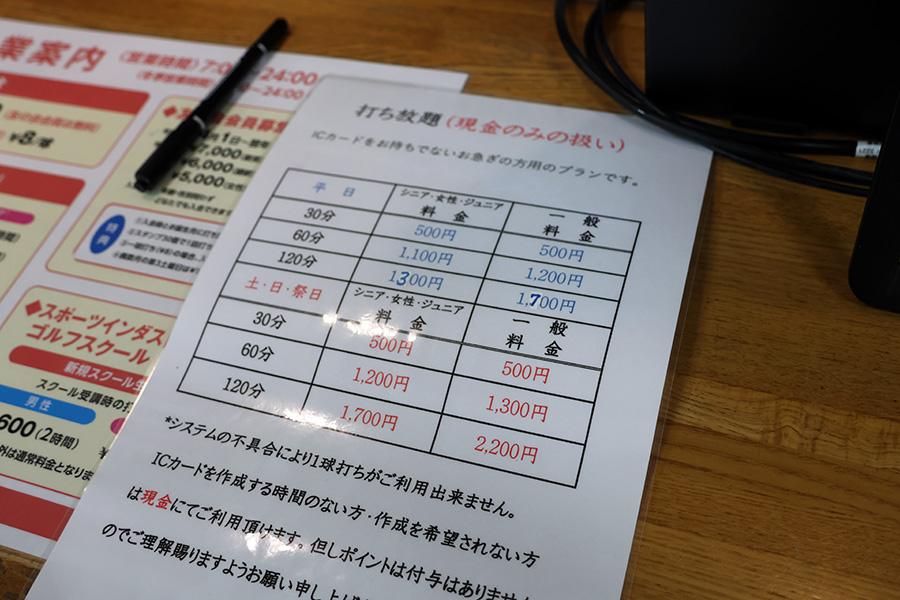 業案内 (営業時間)7:00～24:00
¥8/球
会員募集
1日～
¥7,000
¥6,000
¥5,000(女性
特典
◆スポーツインダス
ゴルフスクール
新規スクール生
スクール受講時の
男性
600(2時間)
外は通常料金となりま
打ち放題(現金のみの扱い)
ICカードをお持ちでないお急ぎの方用のプランです。
平 日 シニア・女性・ジュニア 料 金 一 般 料 金
30分 500円 500円
60分 1,100円 1,200円
120分 1,300円 1,700円
土・日・祭日 シニア・女性・ジュニア 料 金 一 般 料 金
30分 500円 500円
60分 1,200円 1,300円
120分 1,700円 2,200円
*システムの不具合により1球打ちがご利用出来ません。
ICカードを作成する時間のない方・作成を希望されない方
は現金にてご利用頂けます。但しポイントは付与はありません
のでご理解賜りますようお願い申し上げ